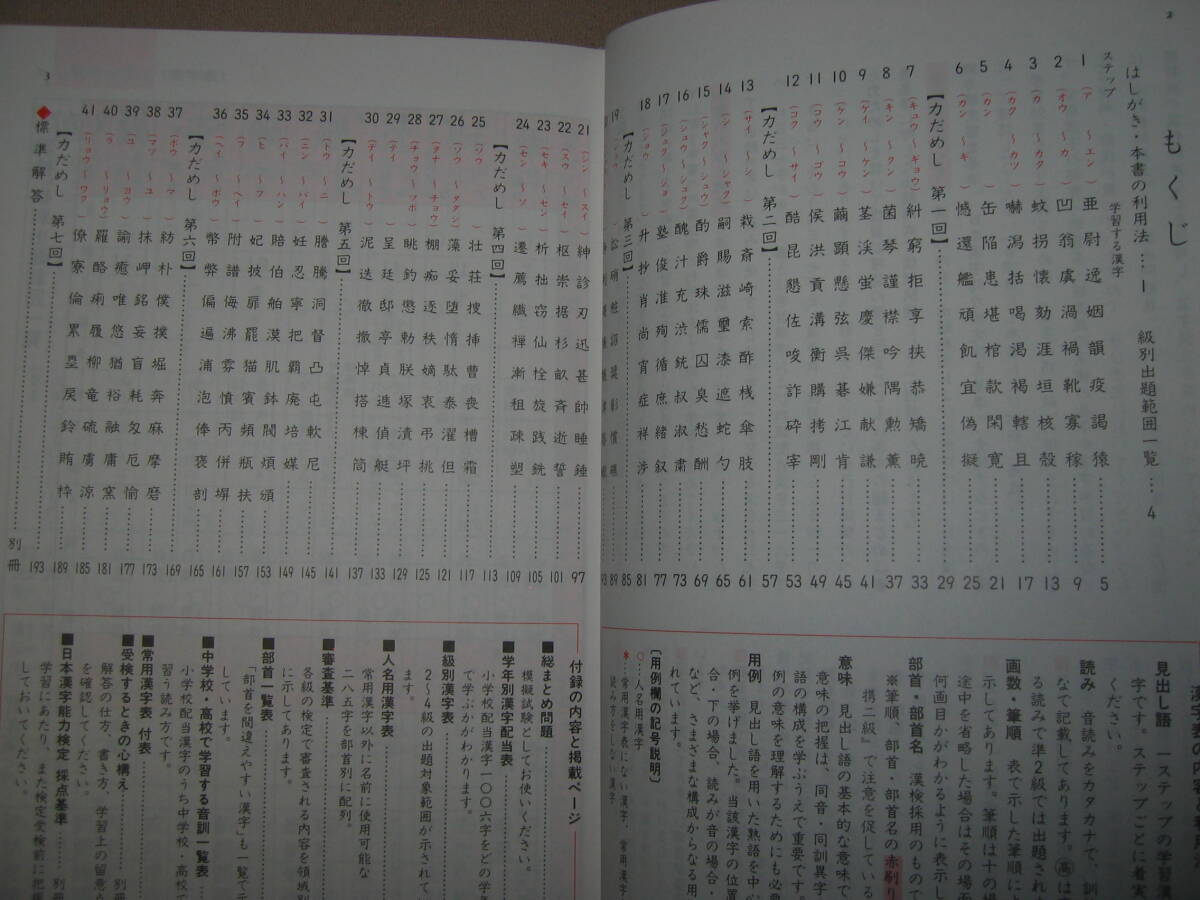 2
もくじ
はしがき・本書の利用法…1
級別出題範囲一覧…4
ステップ
学習する漢字
1(ア〜エン)亜尉逸姻韻疫謁猿……5
2(オウ〜カ)凹翁虞渦禍靴寡稼……9
3(カ〜カク)蚊拐懐劾涯垣核殻……13
4(カク〜カツ)嚇潟括喝渇褐轄且……17
5(カン)缶陥患堪棺款閑寛……21
6(カン〜キ)憾還艦頑飢宜偽擬……25
【力だめし 第一回】……29
7(キュウ〜ギョウ)糾窮拒享挟恭矯暁……33
8(キン〜クン)菌琴謹襟吟隅勲薫……37
9(ケイ〜ケン)茎渓蛍慶傑嫌献謙……41
10(ケン〜コウ)繭顕懸弦呉碁江肯……45
11(コウ〜ゴウ)侯洪貢溝衡購拷剛……49
12(コク〜サイ)酷昆懇佐唆詐砕宰……53
【力だめし 第二回】……57
13(サイ〜シ)栽斎崎索酢桟傘肢……61
14(シ〜シャク)嗣賜滋璽漆遮蛇勺……65
15(シャク〜シュウ)酌爵珠儒囚臭愁酬……69
16(シュウ〜シュク)醜汁充渋銃叔淑粛……73
17(ジュク〜ショ)塾俊准殉循庶緒叙……77
18(ショウ)升抄肖尚宵症祥渉……81
【力だめし 第三回】……85
19
89
3
21(シン〜スイ)紳診刃迅甚帥睡錘……97
22(スウ〜セイ)枢崇据杉畝斉逝誓……101
23(セキ〜セン)析拙窃仙栓旋践銑……105
24(セン〜ソ)遷薦繊禅漸租疎塑……109
【力だめし 第四回】……113
25(ソウ)壮荘捜挿曹喪槽霜……117
26(ソウ〜タダシ)藻妥堕惰駄泰濯但……121
27(タナ〜チョウ)棚痴逐秩嫡衷弔挑……125
28(チョウ〜ツボ)眺釣懲勅朕塚漬坪……129
29(テイ)呈廷邸亭貞逓偵艇……133
30(デイ〜トウ)泥迭徹撤悼搭棟筒……137
【力だめし 第五回】……141
31(トウ〜ニ)謄騰洞督凸屯軟尼……145
32(ニン〜バイ)妊忍寧把覇廃培媒……149
33(バイ〜ハン)賠伯舶漠肌鉢閥煩……153
34(ヒ〜フ)頒妃披扉罷猫賓頻瓶扶……157
35(フ〜ヘイ)附譜侮沸雰憤丙併塀……161
36(ヘイ〜ホウ)幣弊偏遍浦泡俸褒剖……165
【力だめし 第六回】……169
37(ボウ〜マ)紡朴僕撲堀奔麻摩磨……173
38(マツ〜ユ)抹岬銘妄盲耗匁厄愉……177
39(ユ〜ヨウ)諭癒唯悠猶裕融庸窯……181
40(ラ〜リョウ)羅酪痢履柳竜硫虜涼……185
41(リョウ〜ワク)僚寮倫累塁戻鈴賄枠……189
【力だめし 第七回】……193
◆標準解答……別冊
見出し語 一ステップの学習漢
字です。ステップごとに着実
ください。
読み 音読みをカタカナで、訓
なで記載してあります。㊤は
る読みで準2級では出題され
画数・筆順 表で示した筆順に
示してあります。筆順は十の場
途中を省略した場合はその場面
何画目かがわかるように表示し
部首・部首名 漢検採用のもので
※筆順、部首・部首名の赤刷り
携二級」で注意を促している
意味 見出し語の基本的な意味で
意味の把握は、同音・同訓異字
語の構成を学ぶうえで重要です。
例の意味を理解するためにも必要
用例 見出し語を用いた熟語を中心
例を挙げました。当該漢字の位置
合・下の場合、読みが音の場合・
など、さまざまな構成からなる用
れています。
〔用例欄の記号説明〕
○…人名用漢字
*…常用漢字表にない漢字、常用漢字
付録の内容と掲載ページ
■総まとめ問題
模擬試験としてお使いください。
■学年別漢字配当表
小学校配当漢字一〇〇六字をどの学年
で学ぶかがわかります。
■級別漢字表
2〜4級の出題対象範囲が示されて
ます。
■人名用漢字表
常用漢字以外に名前に使用可能な
二八五字を部首別に配列。
■審査基準
各級の検定で審査される内容を領域別
に示してあります。
■部首一覧表
「部首を間違えやすい漢字」も一覧で示
しています。
■中学校・高校で学習する音訓一覧表
小学校配当漢字のうち中学校・高校で
習う読み方です。
■常用漢字表 付表
■受検するときの心構え
解答の仕方、書き方、学習上の留意点
を確認してください。
■日本漢字能力検定 採点基準
学習にあたり、また検定受検前に把握
しておいてください。